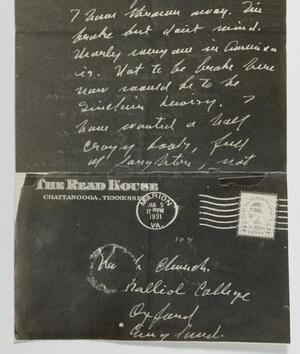 I have thrown away. I'm
broke but don't mind.
Nearly every one in America
is. Not to be broke here
now would be to be
I
have wanted a half
crazy book, full
of laughter, not
THE READ HOUSE
CHATTANOOGA, TENNESSEE
MARION
JAN 5
PM
1931
VA.
Church.
Balliol College
Oxford
England.